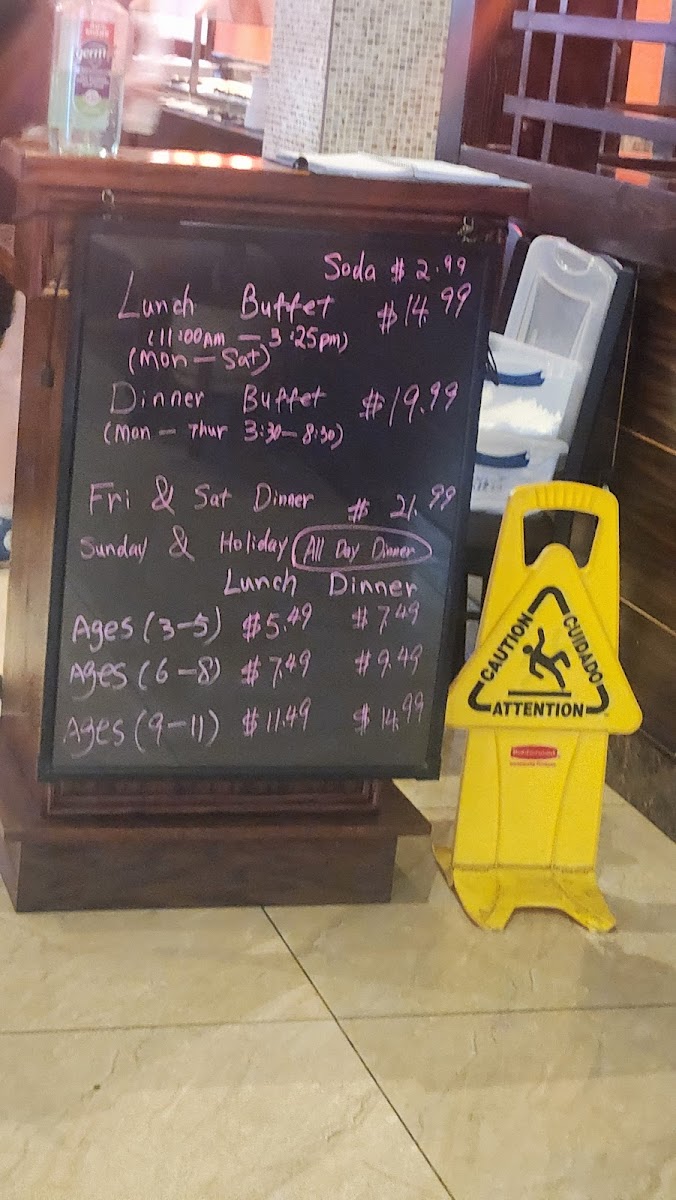 germ
Soda $2.99
Lunch Buffet $14.99
(11:00AM — 3:25pm)
(Mon — Sat)
Dinner Buffet $19.99
(Mon — Thur 3:30—8:30)
Fri & Sat Dinner $21.99
Sunday & Holiday All Day Dinner
Lunch Dinner
Ages (3-5) $5.49 $7.49
Ages (6-8) $7.49 $9.49
Ages (9-11) $11.49 $14.99
CAUTION
CUIDADO
ATTENTION
Rubbermaid